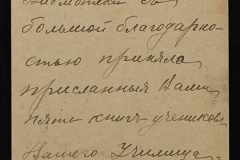 большой благодарно-
стью приняла
присланныя Вами
пять книгъ учениковъ
Вашего Училища